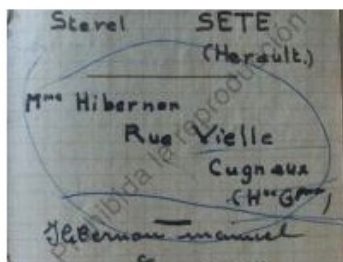 Sterel SETE
(Herault.)
Mme Hibernon
Rue Vielle
Cugnaux
(Hte Gnne)
Hibernon manuel
Prohibida la reproducción